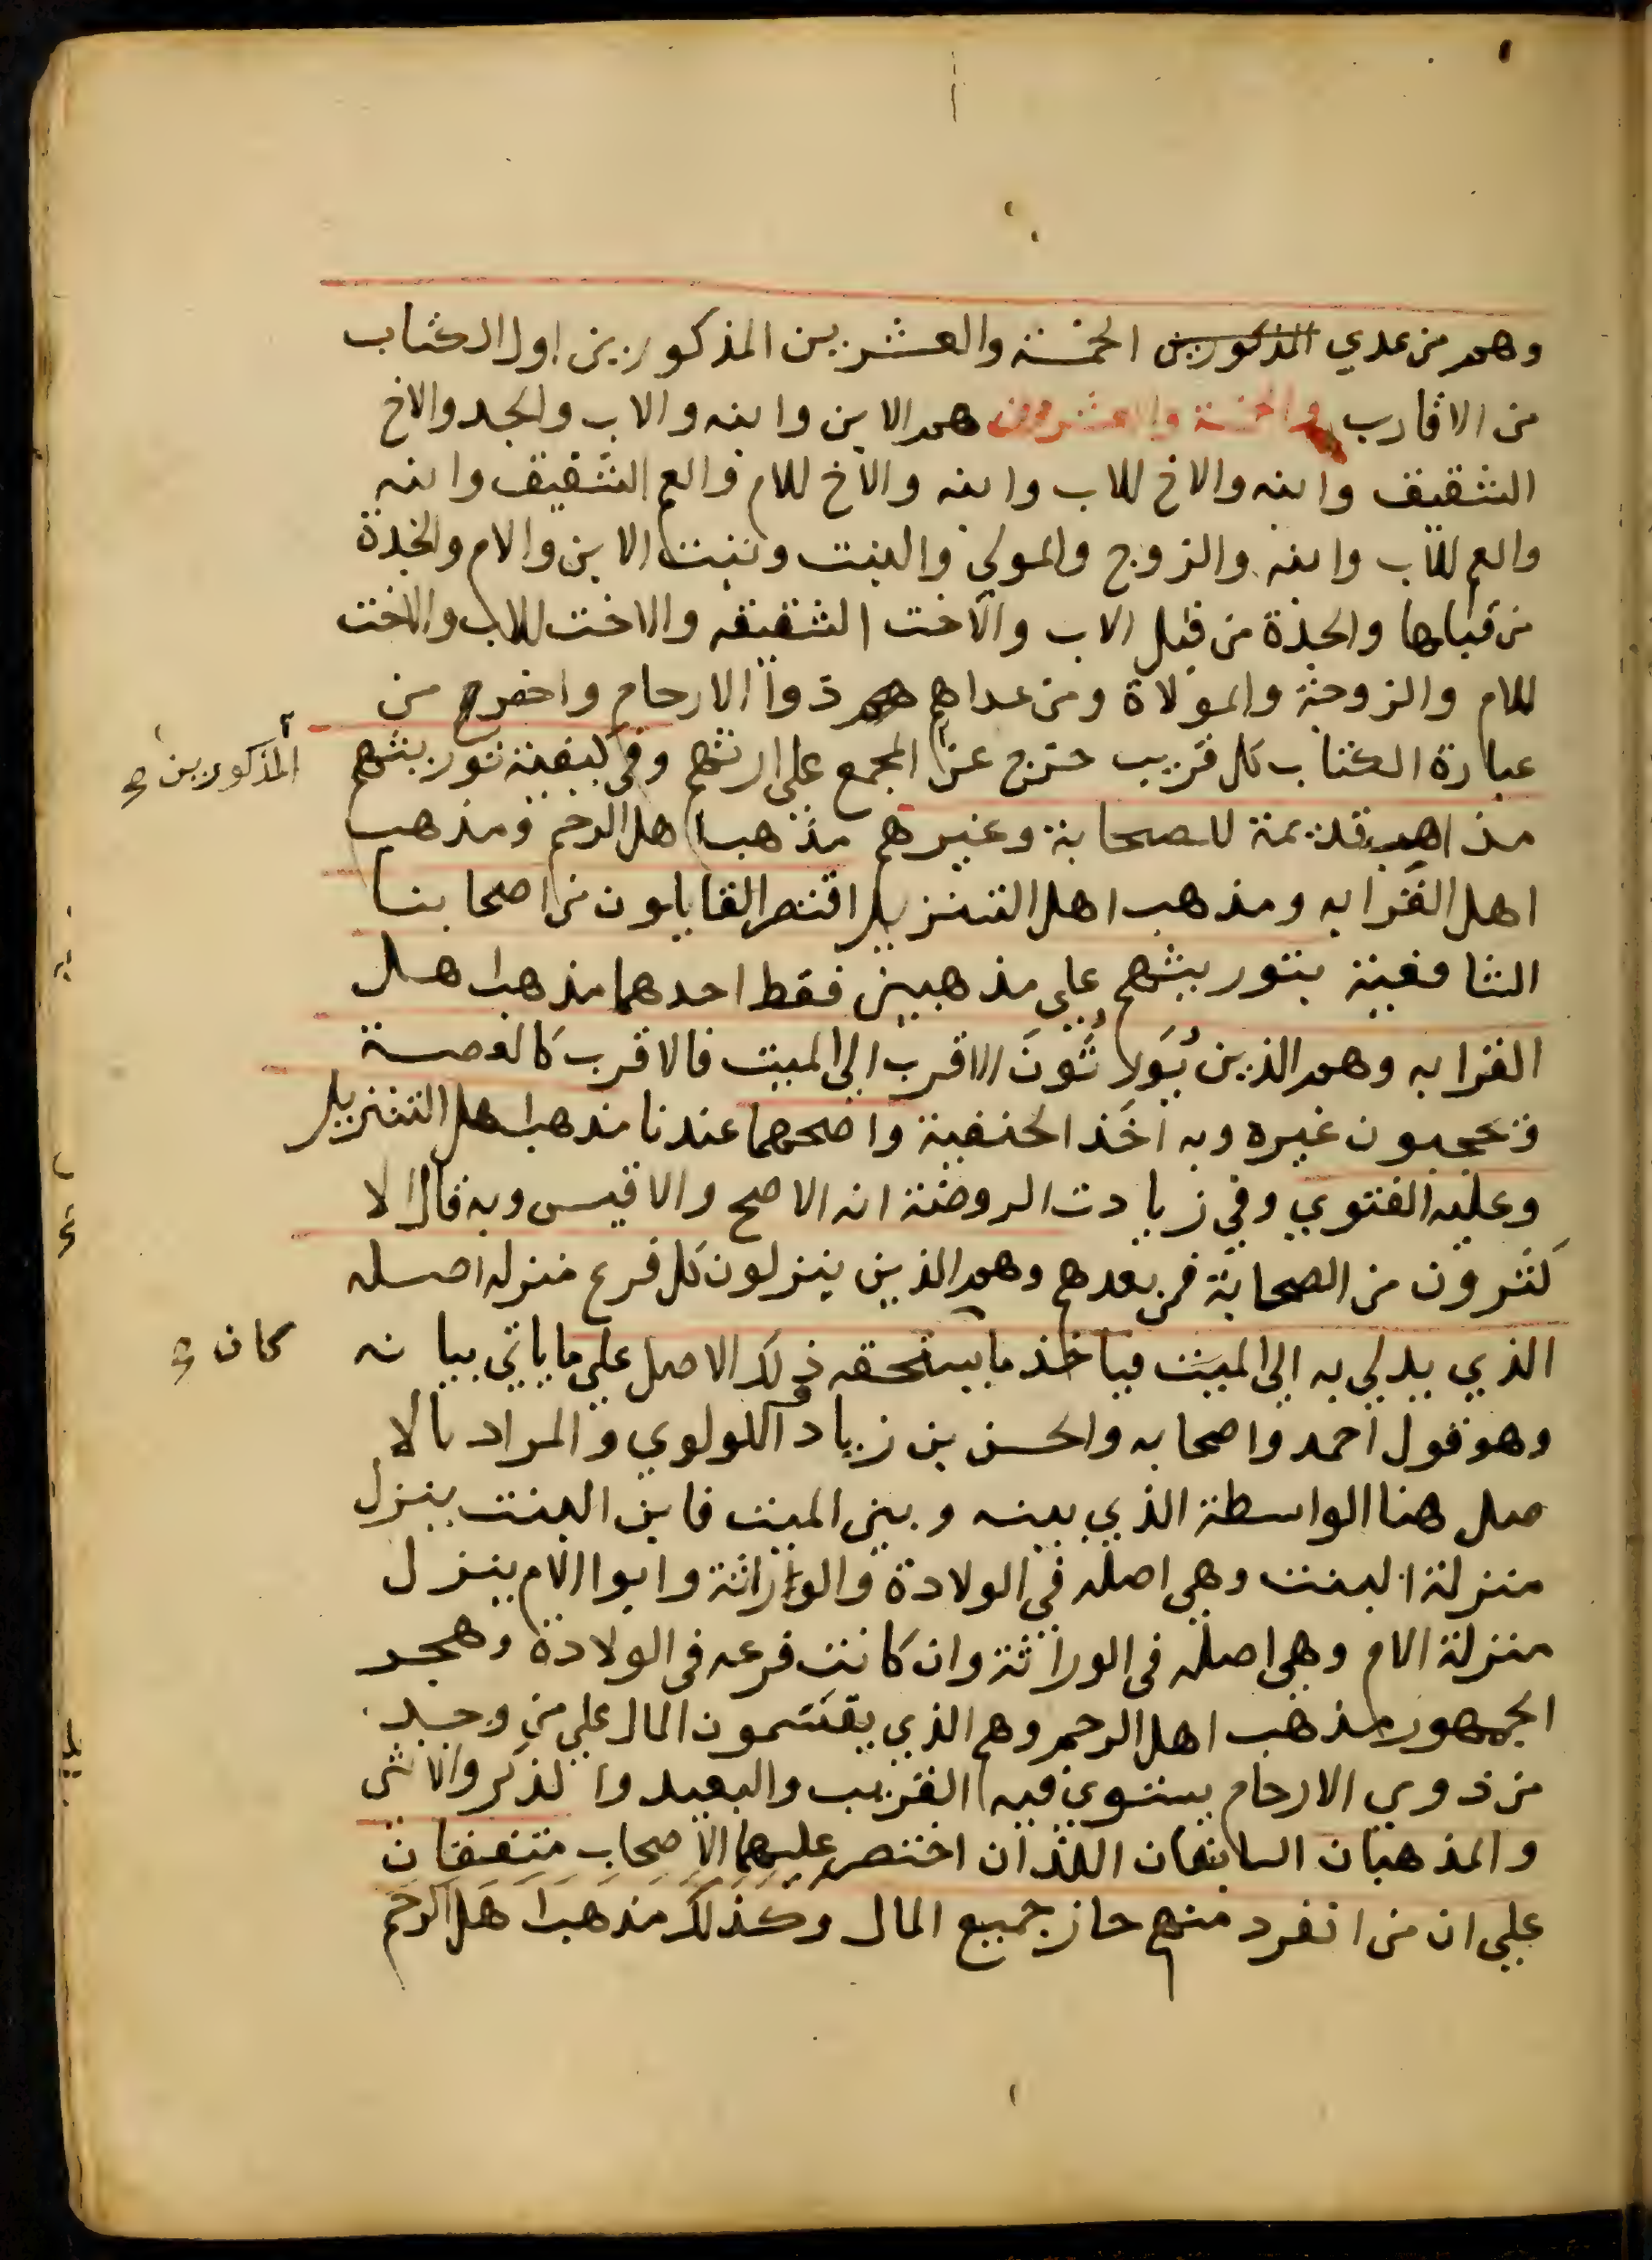 وهم من عدي المذكورين الخمسة والعشرين المذكورين اول الكتاب
من الاقارب والخمسة والعشرون هم الابن وابنه والاب والجد والاخ
الشقيق وابنه والاخ للاب وابنه والاخ للام والعم الشقيق وابنه
والعم للاب وابنه والزوج والمولي والبنت وبنت الابن والام والجدة
من قبلها والجدة من قبل الاب والاخت الشقيقه والاخت للاب والاخت
للام والزوجة والمولاة ومن عداهم هم ذووا الارحام واخصر من
عبارة الكتاب كل قريب خرج عن المجمع على ارثهم وفي كيفية توريثهم
المذكورين صح
مذاهب قديمة للصحابة وغيرهم مذهب اهل الرحم ومذهب
اهل القرابه ومذهب اهل التنزيل اقتصر القايلون من اصحابنا
الشافعية بتوريثهم علي مذهبين فقط احدهما مذهب اهل
القرابه وهم الذين يُوَرِّثُونَ الاقرب الي الميت فالاقرب كالعصبة
فيحجبون غيره وبه اخذ الحنفية واصحهما عندنا مذهب اهل التنزيل
وعليه الفتوي وفي زيادت الروضة انه الاصح والاقيس وبه قال الا
كثرون من الصحابة فمن بعدهم وهم الذين ينزلون كل فرع منزله اصله
الذي يدلي به الي الميت فياخذ ما يستحقه ذلك الاصل علي ما ياتي بيانه
كان صح
وهو قول احمد واصحابه والحسن بن زياد اللولوي والمراد بالا
صل هنا الواسطة الذي بينه وبين الميت فابن البنت ينزل
منزلة البنت وهي اصله في الولادة والوراثة وابوا الام ينزل
منزلة الام وهي اصله في الوراثة وان كانت فرعه في الولادة وهجر
الجمهور مذهب اهل الرحم وهم الذي يقتسمون المال علي من وجد
من ذوي الارحام يستوي فيه القريب والبعيد والذكر والانثى
والمذهبان السابقان اللذان اختصر عليهما الاصحاب متفقان
علي ان من انفرد منهم حاز جميع المال وكذلك مذهب اهل الرحم